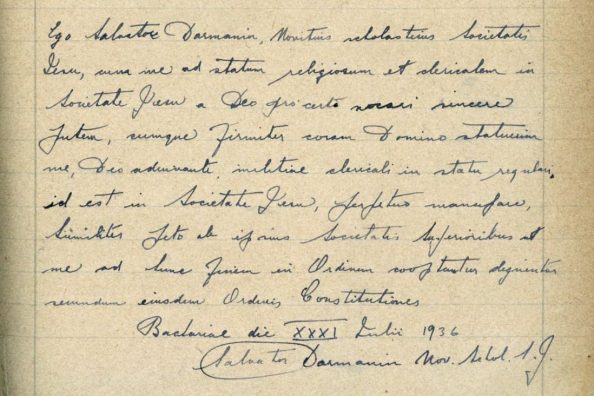 Ego Salvator Darmanin, Novitius scholasticus Societatis
Iesu, cum me ad statum religiosum et clericalem in
Societate Iesu a Deo pro certo vocari sincere
putem, cumque firmiter coram Domino statuerim
me, Deo adiuvante, militiae clericali in statu regulari,
id est in Societate Iesu, perpetuo mancipare,
humiliter peto ab ipsius Societatis Superioribus ut
me ad hunc finem in Ordinem cooptare dignentur
secundum eiusdem Ordinis Constitutiones
die XXXI Iulii 1936
Salvator Darmanin Nov. Schol. S. J.